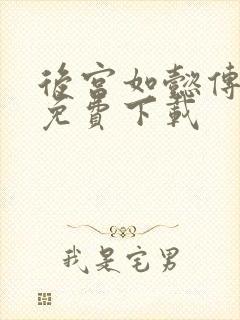 後宮如懿傳
免費下載
我是宅男